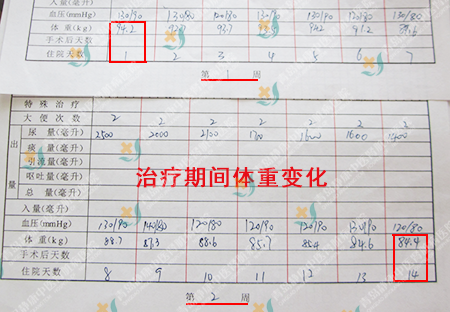 入量(毫升)
血压(mmHg) 130/90 130/80 120/80 130/90 120/80 130/80
体重(kg) 94.2 93.7 91.2
手术后天数
住院天数 1 2 3 4 5 6 7
第 1 周
特殊治疗
大便次数 2 2 2 2 2 2 2
尿量(毫升) 2500 2000 2100 1600 1600
痰量(毫升)
出量
引流量(毫升)
治疗期间体重变化
呕吐量(毫升)
总量(毫升)
入量(毫升)
血压(mmHg) 130/90 140/80 120/80 120/90 120/90 130/90 120/80
体重(kg) 88.7 87.3 88.6 85.7 85.4 84.6 84.4
手术后天数
住院天数 8 9 10 11 12 13 14
第 2 周